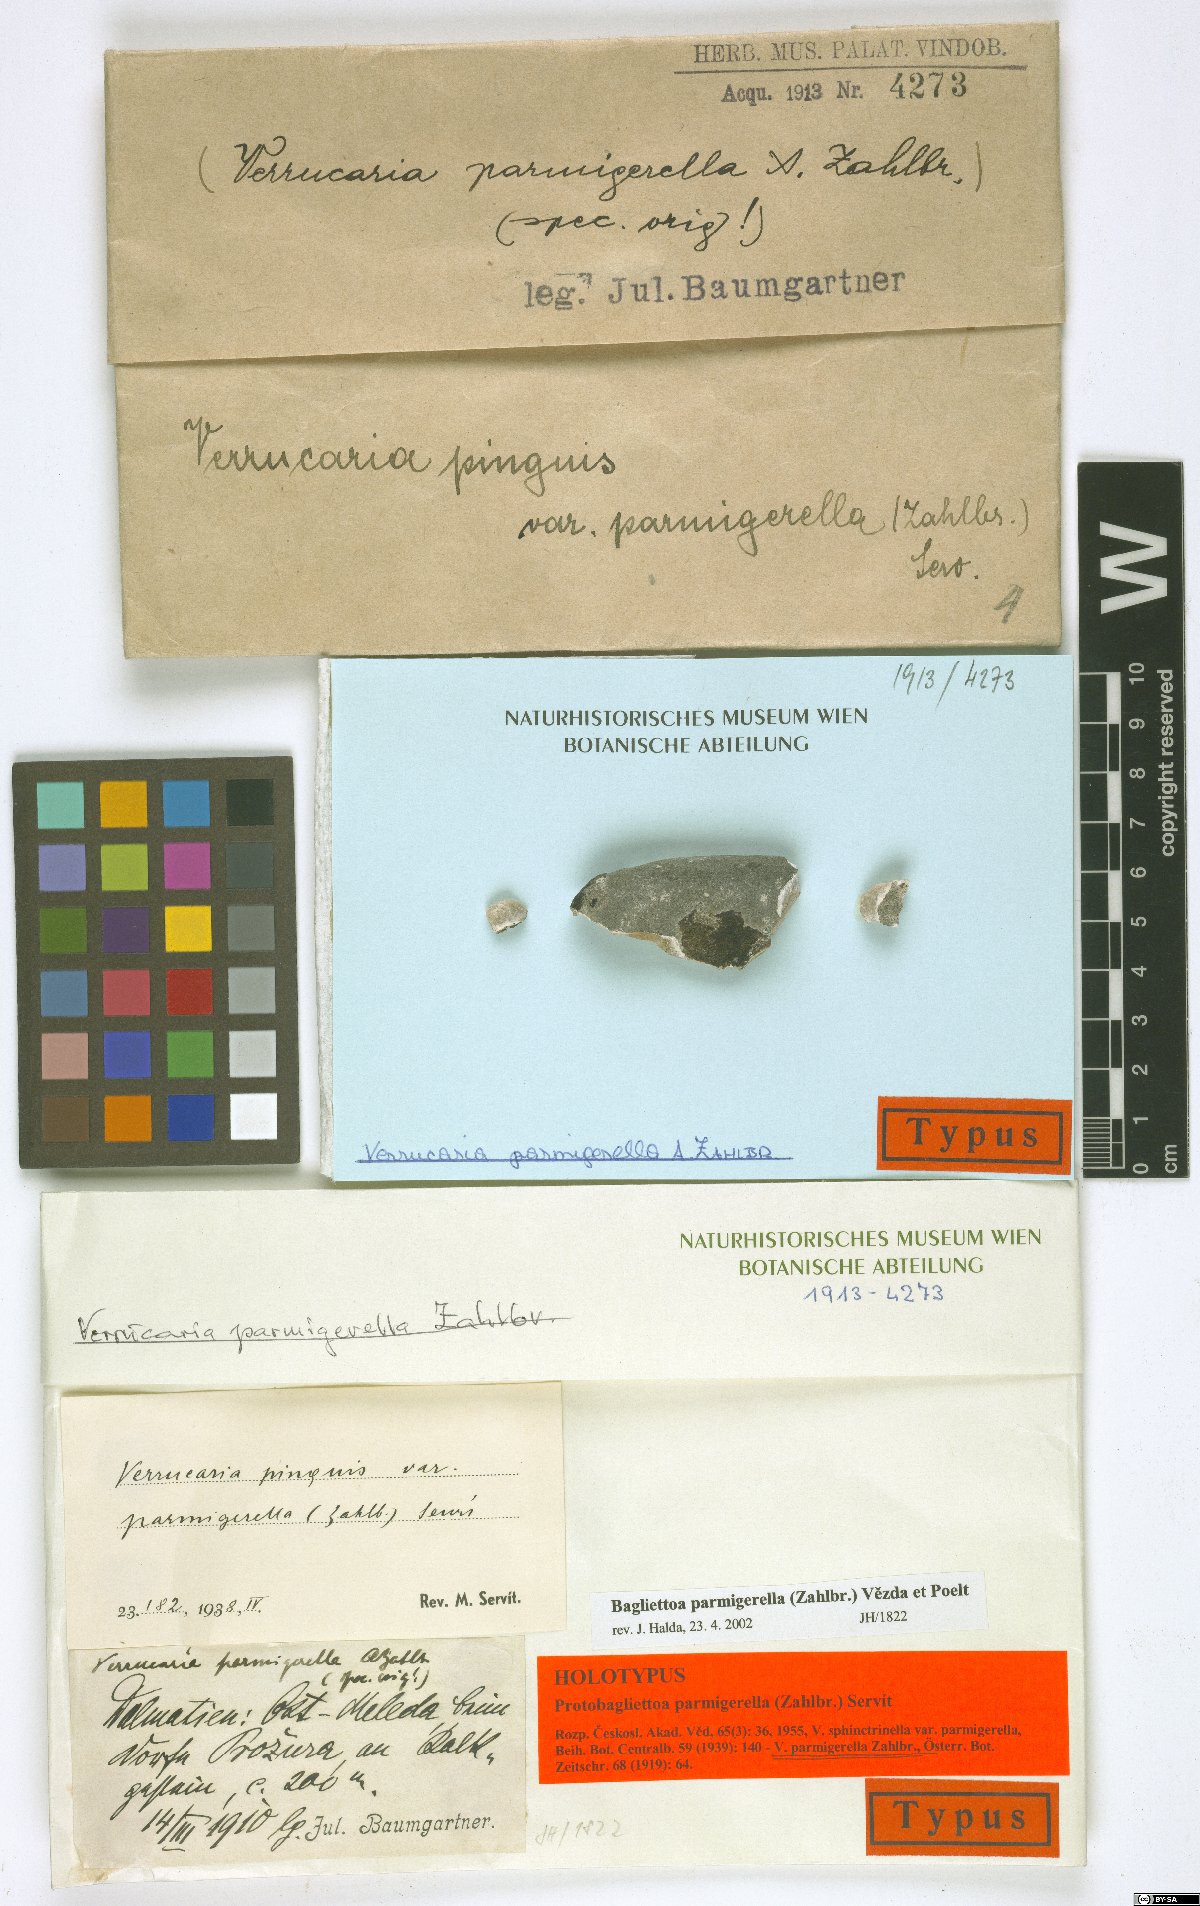 HERB. MUS. PALAT. VINDOB.
Acqu. 1913 Nr. 4273
(Verrucaria parmigerella A. Zahlbr.)
(spec. orig!)
leg. Jul. Baumgartner
Verrucaria pinguis
var. parmigerella (Zahlbr.)
Serv.
4
1913/4273
NATURHISTORISCHES MUSEUM WIEN
BOTANISCHE ABTEILUNG
Typus
Verrucaria parmigerella A. ZAHLBR.
W
10
9
8
7
6
5
4
3
2
1
0
cm
copyright reserved
NATURHISTORISCHES MUSEUM WIEN
BOTANISCHE ABTEILUNG
1913-4273
Verrucaria parmigerella Zahlbr.
Verrucaria pinguis var.
parmigerella (Zahlb.)
23. 182. 1938, IV.
Rev. M. Servít.
Bagliettoa parmigerella (Zahlbr.) Vězda et Poelt
rev. J. Halda, 23. 4. 2002 JH/1822
Verrucaria parmigerella AZahlbr
(spec. orig!)
Dalmatien: Ost-Meleda beim
Dorfe Prožura, an Kalk-
gestein, c. 200 m.
14/III 1910 lg. Jul. Baumgartner.
HOLOTYPUS
Protobagliettoa parmigerella (Zahlbr.) Servít
Rozp. Českosl. Akad. Věd. 65(3): 36, 1955, V. sphinctrinella var. parmigerella,
Beih. Bot. Centralb. 59 (1939): 140 - V. parmigerella Zahlbr., Österr. Bot.
Zeitschr. 68 (1919): 64.
JH/1822
Typus
CC BY-SA